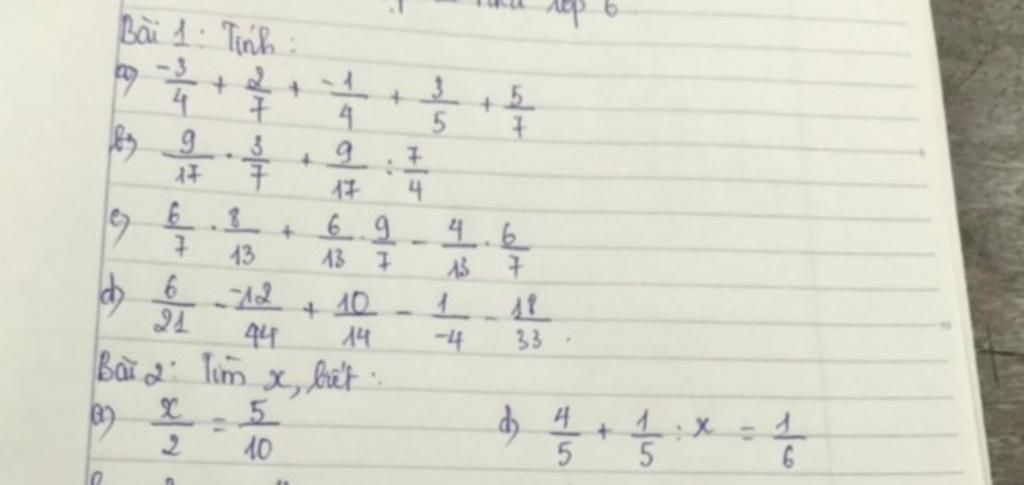 lớp 6
Bài 1: Tính:
a) -3/4 + 2/7 + -1/4 + 3/5 + 5/7
b) 9/17 . 3/7 + 9/17 : 7/4
c) 6/7 . 8/13 + 6/13 . 9/7 - 4/13 . 6/7
d) 6/21 - -12/44 + 10/14 - 1/-4 - 18/33.
Bài 2: Tìm x, biết:
a) x/2 = 5/10 d) 4/5 + 1/5 : x = 1/6